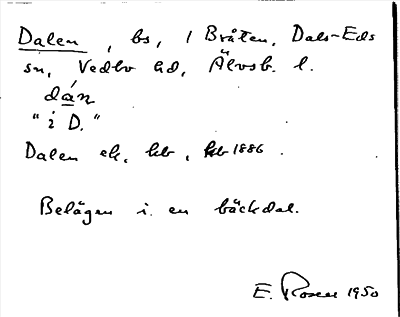 Dalen, bs, i Bråten, Dals-Eds
sn, Vedbo hd, Älvsb. l.
dán
"i D."
Dalen ek, kb, hb 1886.
Belägen i en bäckdal.
E. Rosell 1950